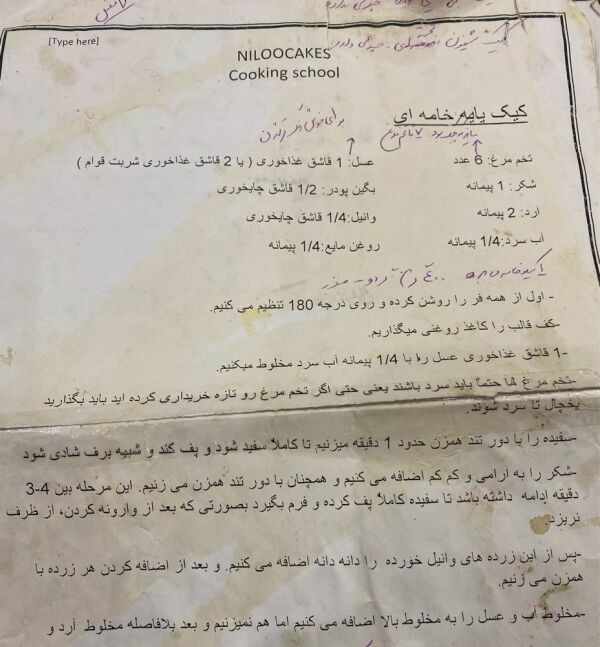 [Type here]
NILOOCAKES
Cooking school
کیک پایه خامه ای
تخم مرغ: 6 عدد
عسل: 1 قاشق غذاخوری ( یا 2 قاشق غذاخوری شربت قوام )
شکر: 1 پیمانه
بگین پودر: 1/2 قاشق چایخوری
آرد: 2 پیمانه
وانیل:1/4 قاشق چایخوری
آب سرد:1/4 پیمانه
روغن مایع:1/4 پیمانه
- اول از همه فر را روشن کرده و روی درجه 180 تنظیم می کنیم.
-کف قالب را کاغذ روغنی میگذاریم.
-1 قاشق غذاخوری عسل را با 1/4 پیمانه آب سرد مخلوط میکنیم.
-تخم مرغ ها حتماً باید سرد باشند یعنی حتی اگر تخم مرغ رو تازه خریداری کرده اید باید بگذارید
یخچال تا سرد شوند.
-سفیده را با دور تند همزن حدود 1 دقیقه میزنیم تا کاملاً سفید شود و پف کند و شبیه برف شادی شود
-شکر را به آرامی و کم کم اضافه می کنیم و همچنان با دور تند همزن می زنیم. این مرحله بین 4-3
دقیقه ادامه داشته باشد تا سفیده کاملاً پف کرده و فرم بگیرد بصورتی که بعد از وارونه کردن، از ظرف
نریزد
-پس از این زرده های وانیل خورده را دانه دانه اضافه می کنیم. و بعد از اضافه کردن هر زرده با
همزن می زنیم.
-مخلوط آب و عسل را به مخلوط بالا اضافه می کنیم اما هم نمیزنیم و بعد بلافاصله مخلوط آرد و